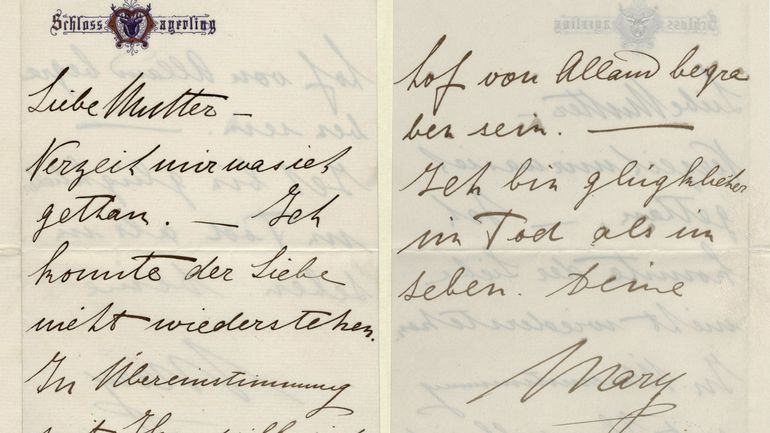 Schloss Mayerling
Liebe Mutter –
Verzeih mir was ich
gethan. – Ich
konnte der Liebe
nicht wiederstehen.
In Übereinstimmung
mit Ihm will ich
hof von Alland begra
ben sein. —
Ich bin glücklicher
im Tod als im
Leben. Deine
Mary